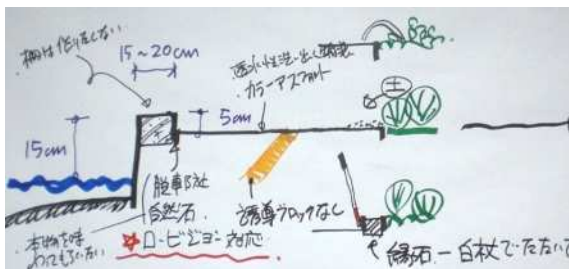 ・柵は作りたくない
15~20cm
透水性洗い出し舗装
カラーアスファルト
土
5cm
15cm
脱車防止
自然石
誘導ブロックなし
・本物を味
わってもらいたい
☆ロービジョン対応
縁石 - 白杖でたたいて